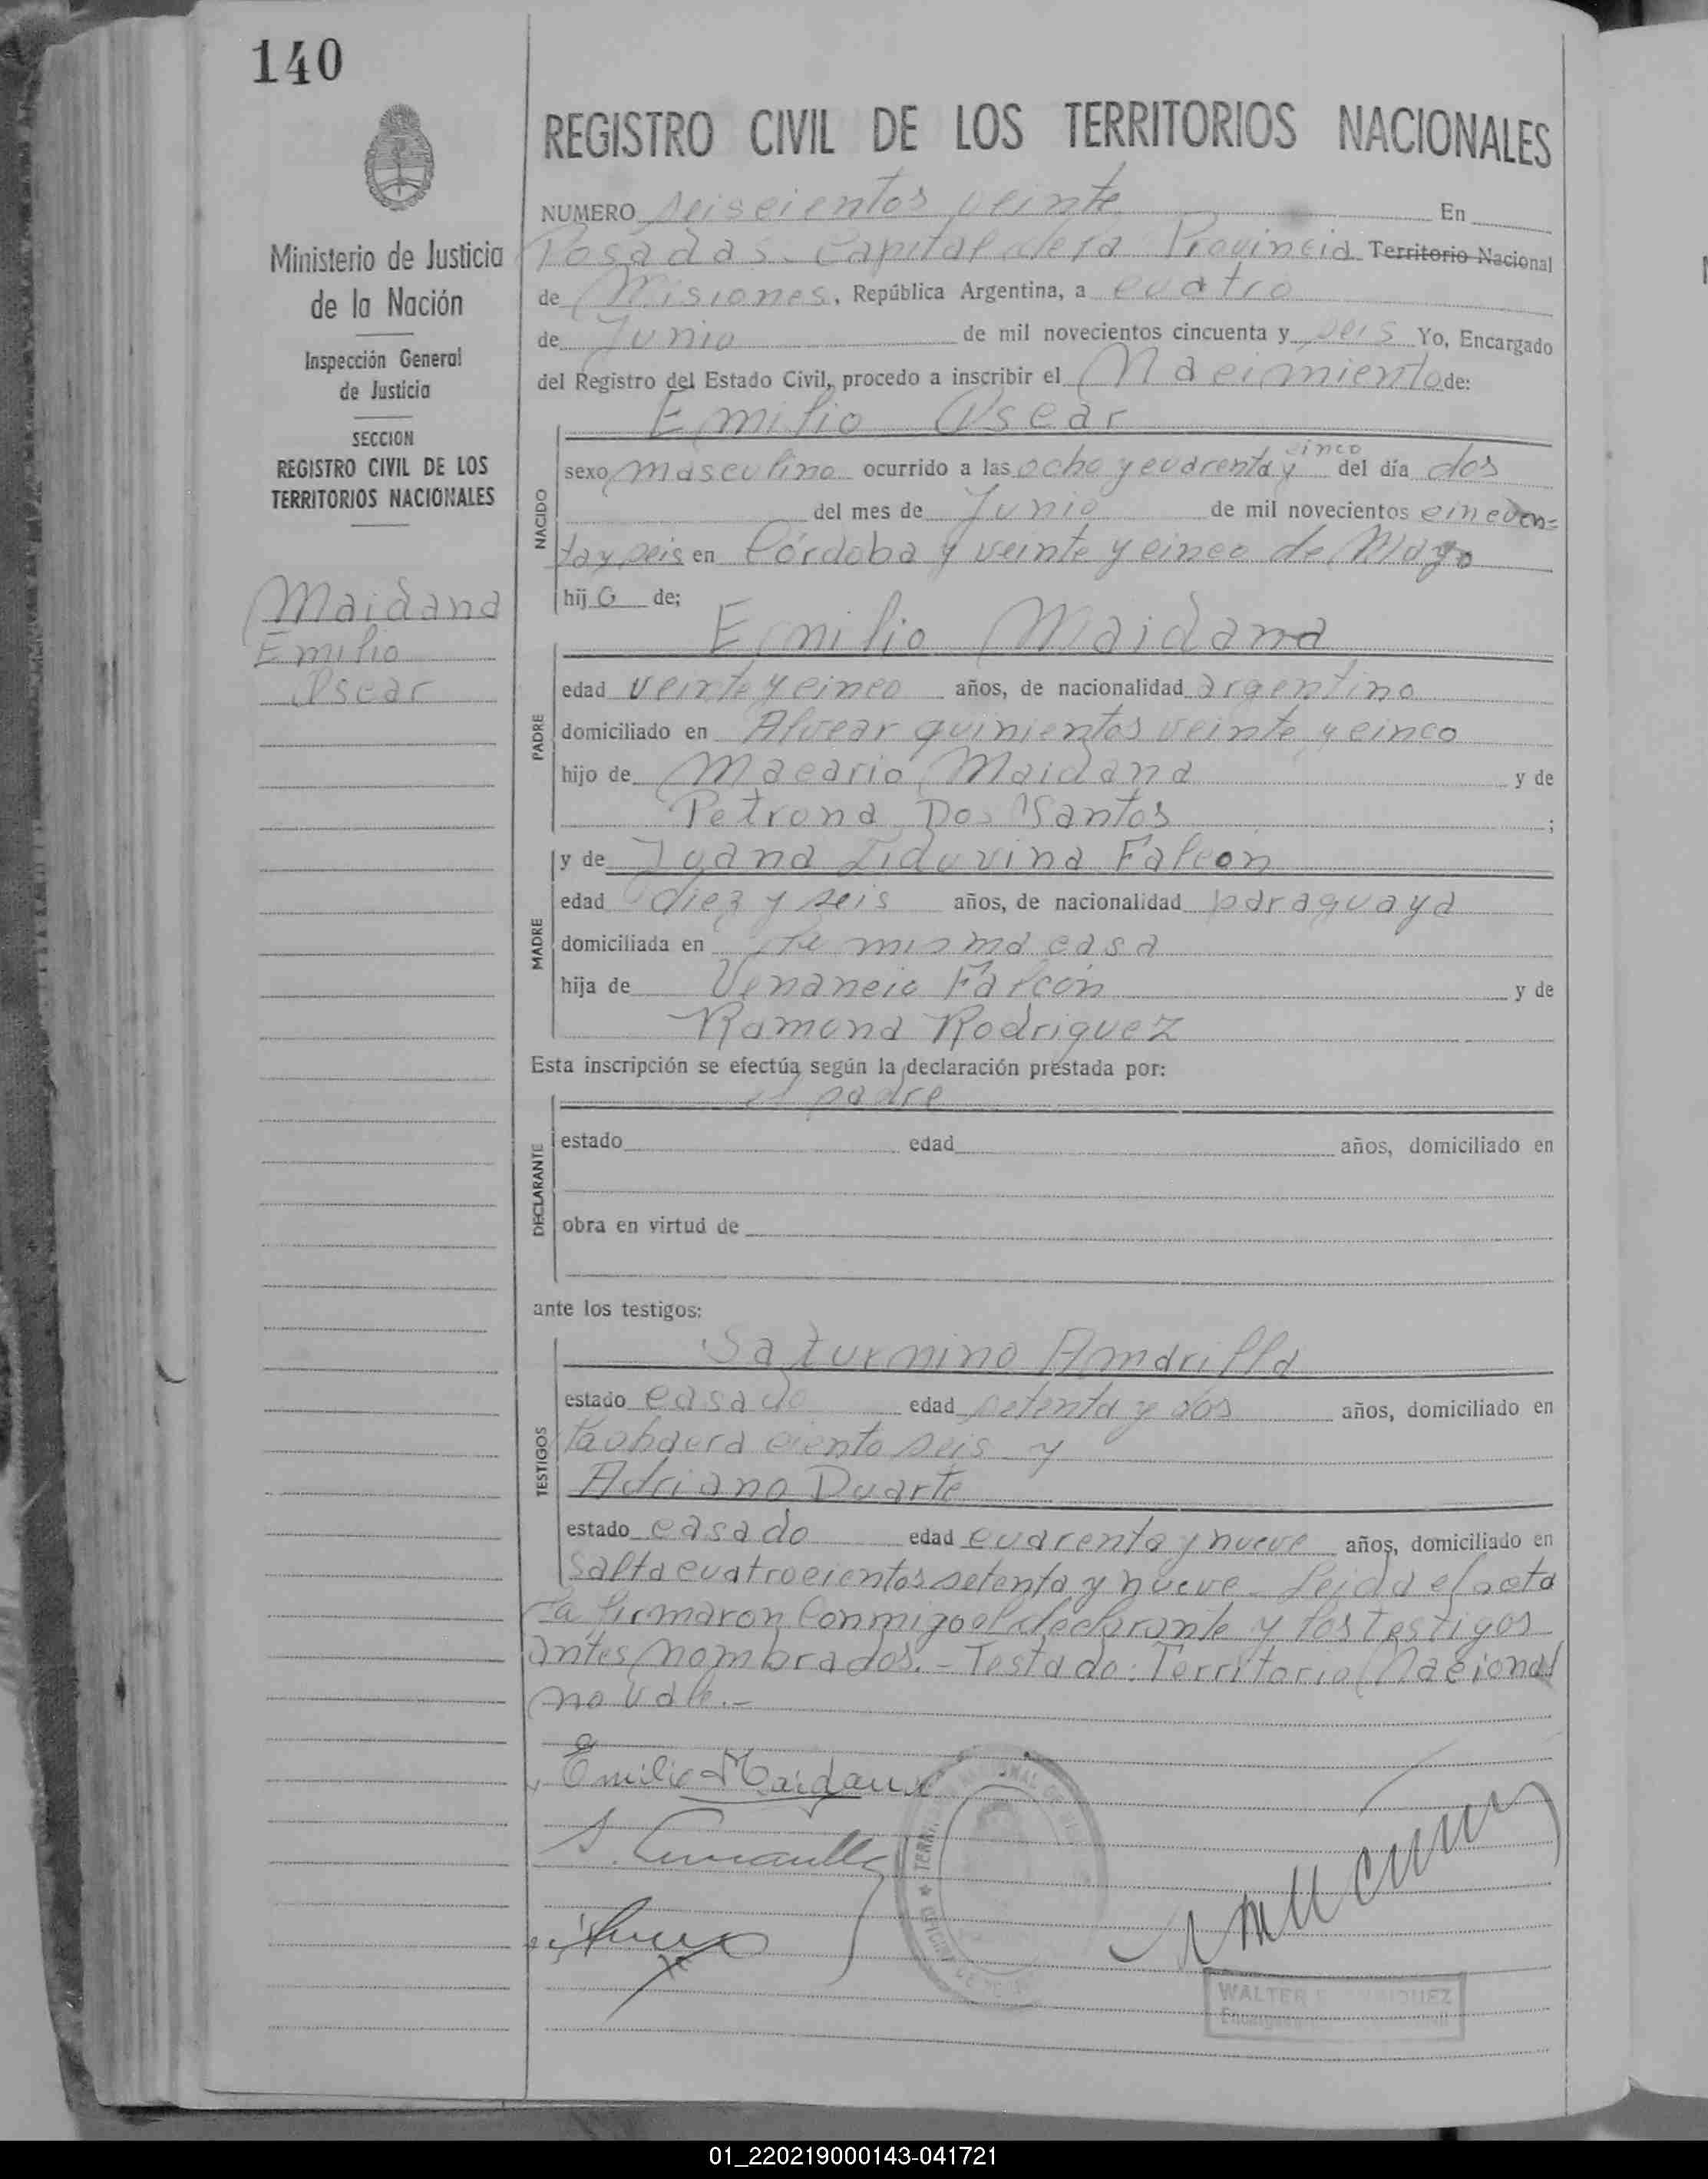 140
REGISTRO CIVIL DE LOS TERRITORIOS NACIONALES
Ministerio de Justicia
de la Nación
Inspección General
de Justicia
SECCION
REGISTRO CIVIL DE LOS
TERRITORIOS NACIONALES
Maidana
Emilio
Oscar
NUMERO seiscientos veinte En
Posadas Capital de la Provincia Territorio Nacional
de Misiones, República Argentina, a cuatro
de Junio de mil novecientos cincuenta y seis Yo, Encargado
del Registro del Estado Civil, procedo a inscribir el Nacimiento de:
Emilio Oscar
NACIDO
cinco
sexo masculino ocurrido a las ocho y cuarenta y del día dos
del mes de Junio de mil novecientos cincuen=
ta y seis en Córdoba y veinte y cinco de Mayo
hijo de;
Emilio Maidana
PADRE
edad veinte y cinco años, de nacionalidad argentino
domiciliado en Alvear quinientos veinte y cinco
hijo de Macario Maidana y de
Petrona Dos Santos ;
y de Juana Liduvina Falcon
MADRE
edad diez y seis años, de nacionalidad paraguaya
domiciliada en la misma casa
hija de Venancio Falcón y de
Ramona Rodriguez
Esta inscripción se efectúa según la declaración prestada por:
el padre
DECLARANTE
estado edad años, domiciliado en
obra en virtud de
ante los testigos:
Saturnino Amarilla
TESTIGOS
estado casado edad setenta y dos años, domiciliado en
ciento seis y
Adriano Duarte
estado casado edad cuarenta y nueve años, domiciliado en
Salta cuatrocientos setenta y nueve - Leida el acta
la firmaron conmigo el declarante y los testigos
antes nombrados. - Testado: Territorio Nacional
no vale. -
Emilio Maidana
S. Amarilla
WALTER
01_220219000143-041721